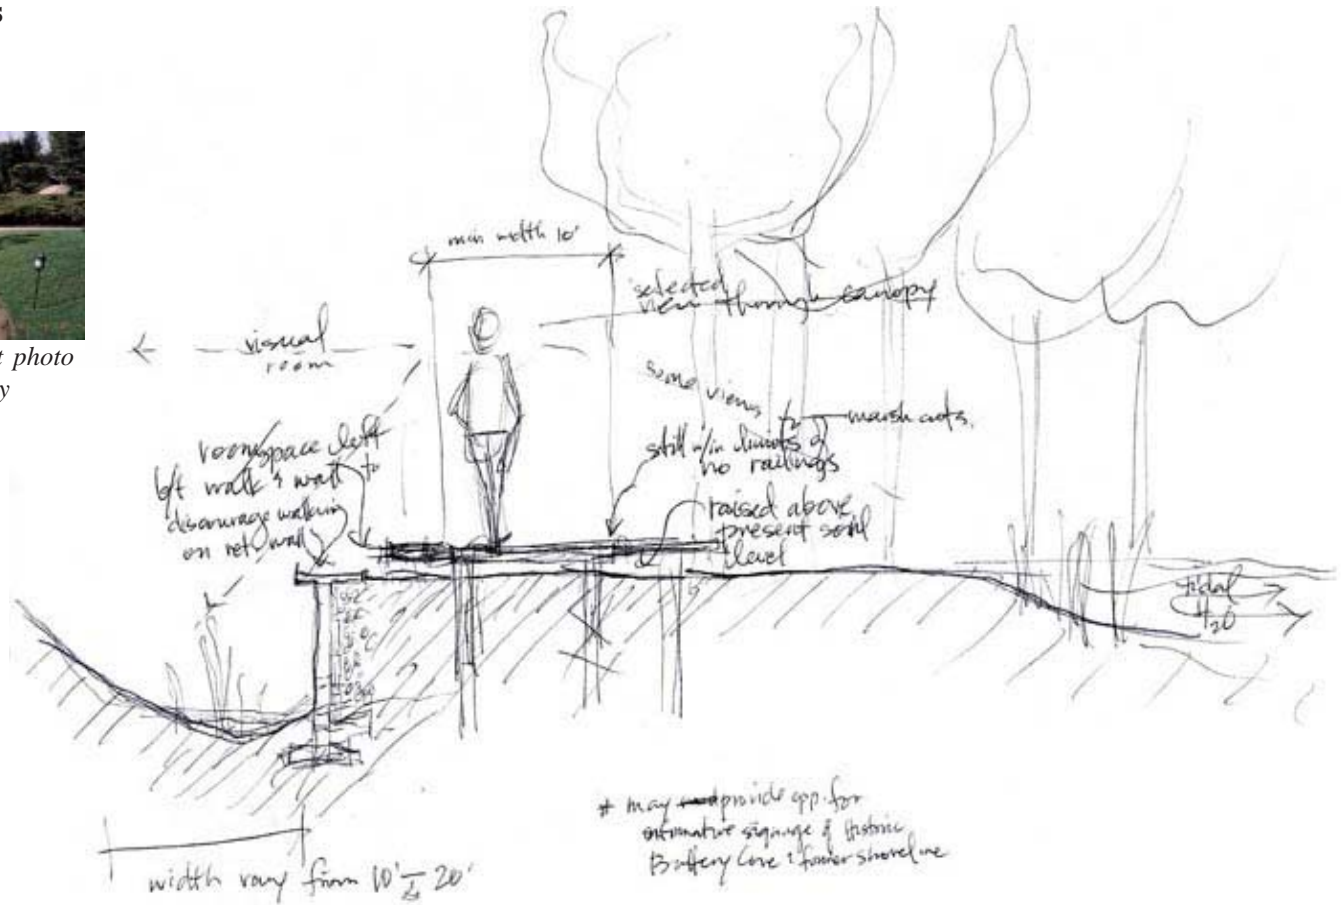 s
t photo
y
min width 10'
selected
view through canopy
visual
room
some views
to marsh acts.
room/space left
b/t walk & wall to
discourage walking
on ret. wall
still w/in limits of
no railings
raised above
present soil
level
tidal
H20
* may provide opp. for
informative signage of Historic
Battery Cove & former shoreline
width vary from 10' to 20'